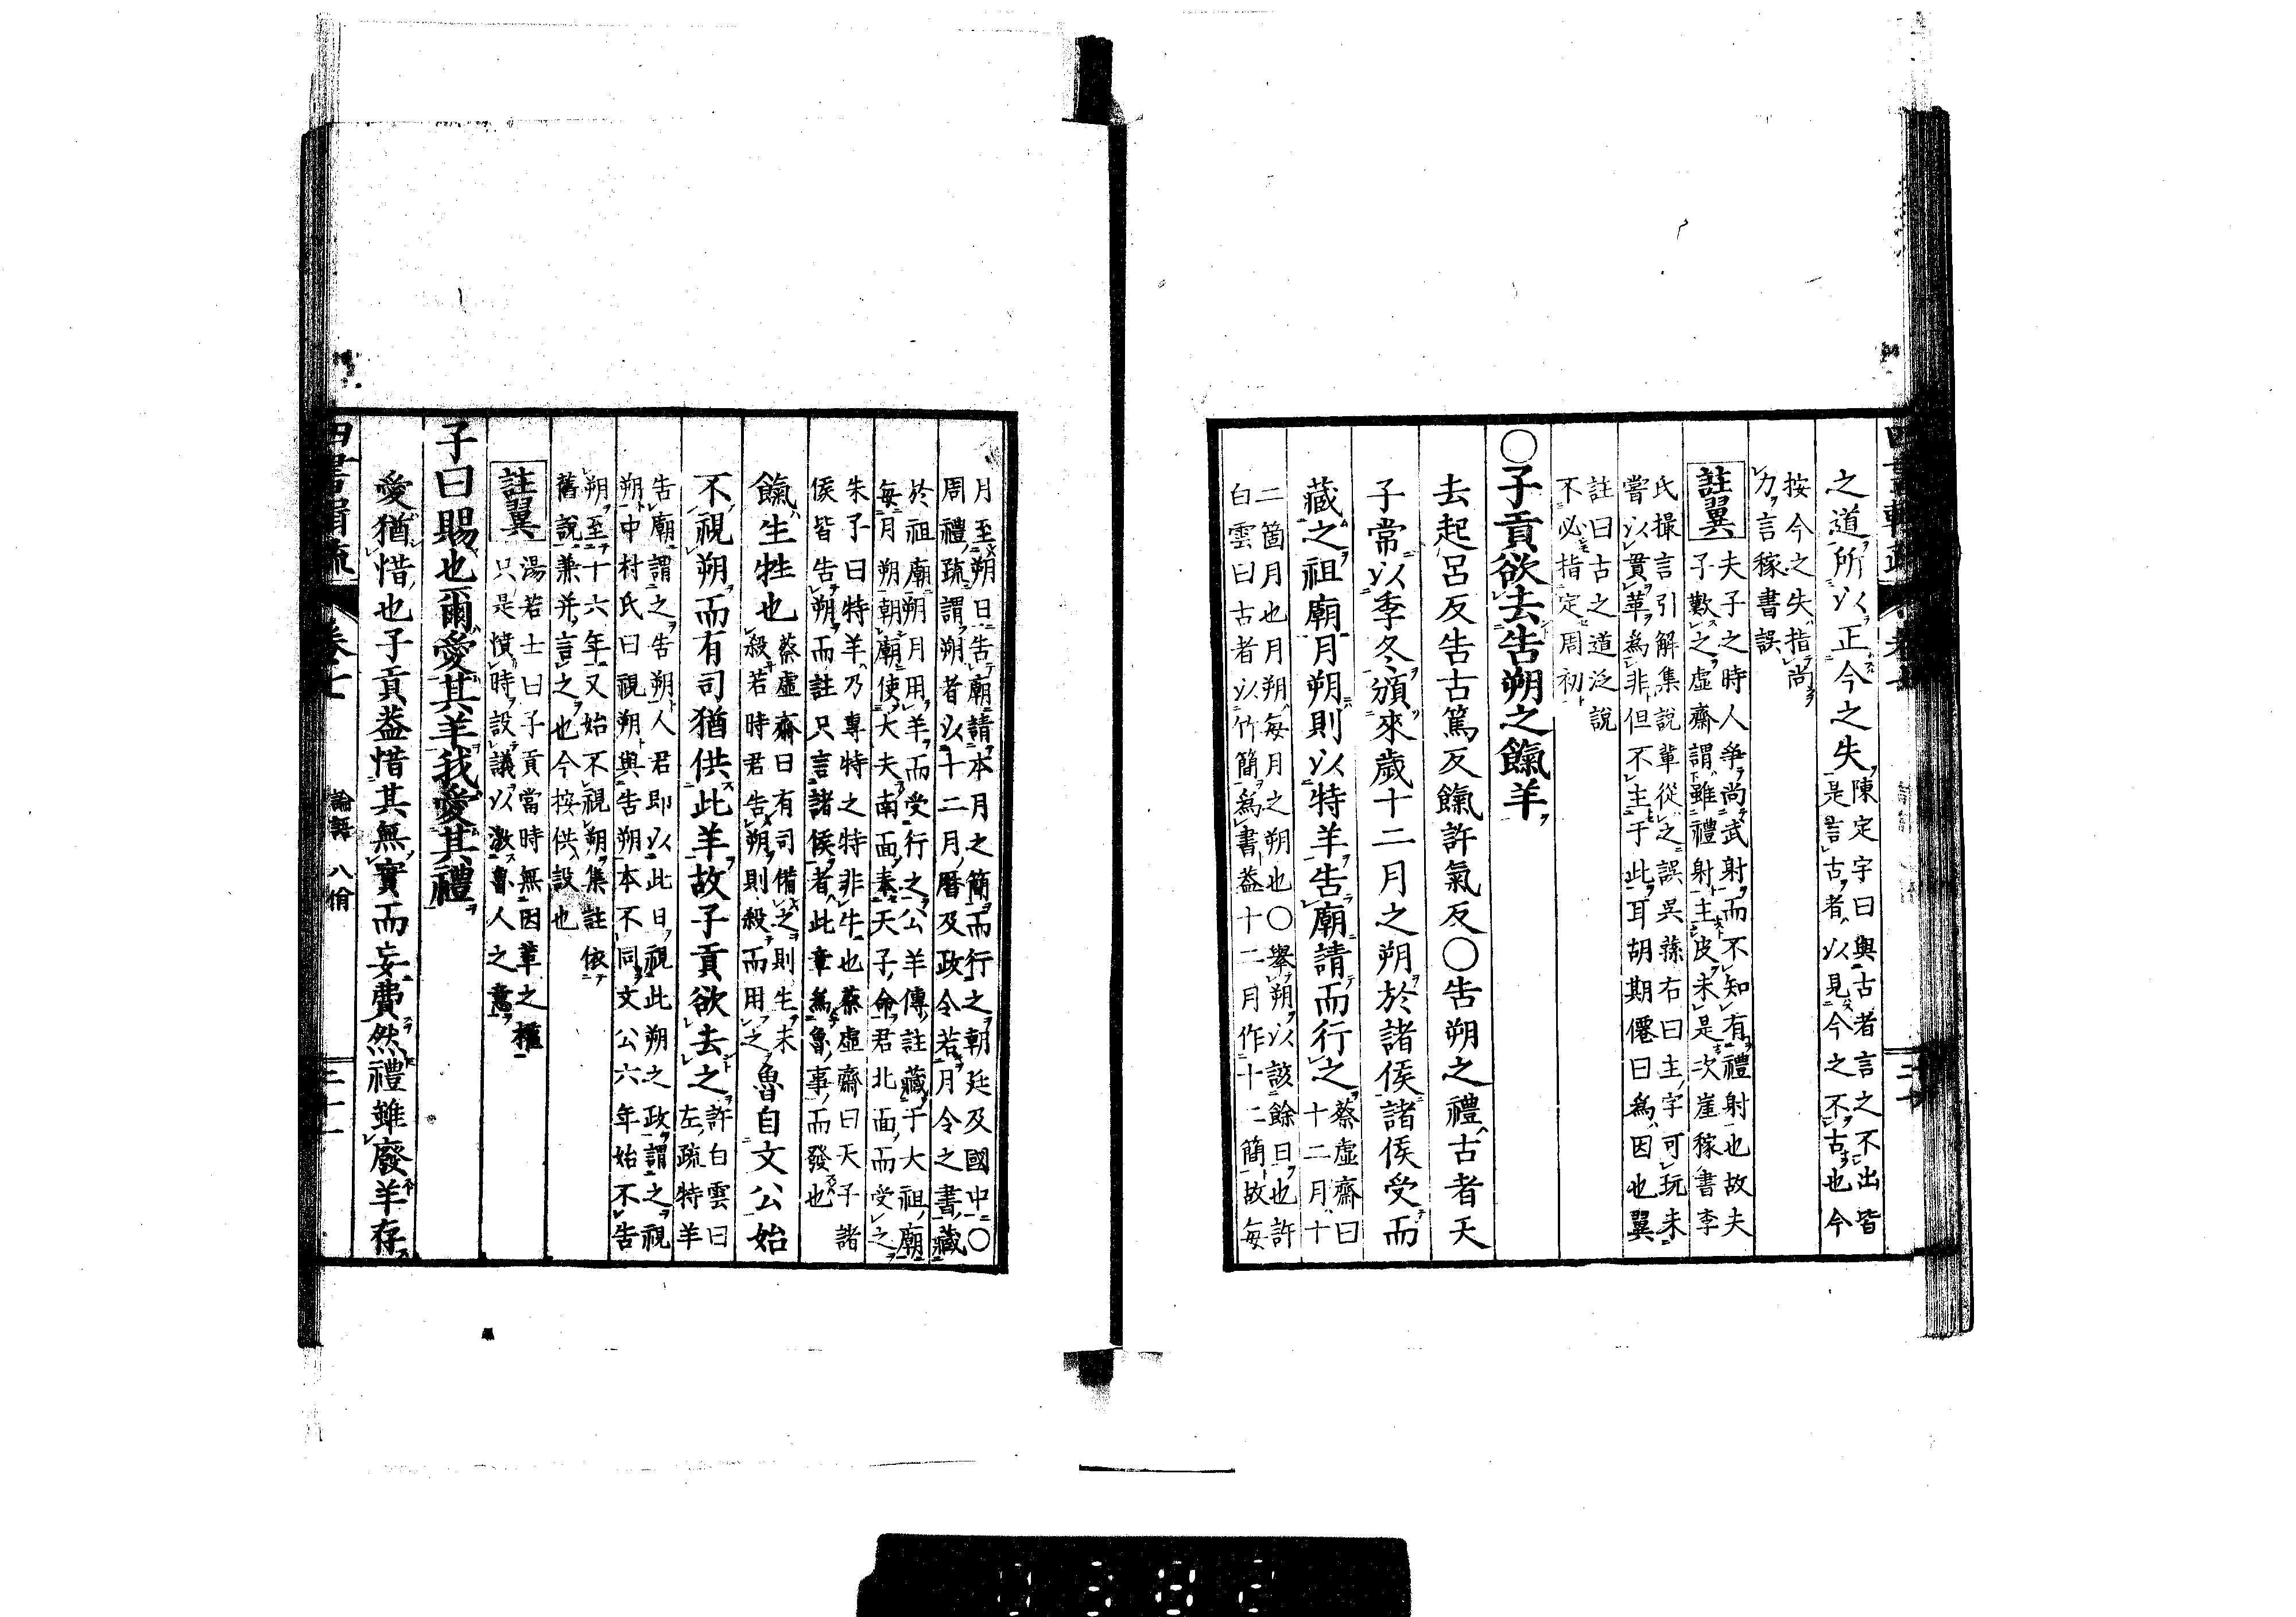 之道所以正今之失陳定字曰與古者言之不出皆
是言古者以見今之不古也今
按今之失指尚
力言稼書誤
註翼夫子之時人爭尚武射而不知有禮射也故夫
子歎之虛齋謂雖禮射主皮未是次崖稼書李
氏操言引解集說輩從之誤吳蓀右曰主字可玩未
嘗以貫革爲非但不主于此耳胡期僊曰爲因也翼
註曰古之道泛說
不必指定周初
○子貢欲去告朔之餼羊
去起呂反告古篤反餼許氣反○告朔之禮古者天
子常以季冬頒來歲十二月之朔於諸侯諸侯受而
藏之祖廟月朔則以特羊告廟請而行之蔡虛齋曰
十二月十
二箇月也月朔每月之朔也○舉朔以該餘日也許
白雲曰古者以竹簡爲書蓋十二月作十二簡故每
月至朔日告廟請本月之簡而行之朝廷及國中○
周禮疏謂朔者以十二月曆及政令若月令之書藏
於祖廟朔月用羊而受行之公羊傳註藏于大祖廟
每月朔朝廟使大夫南面奉天子命君北面而受之
朱子曰特羊乃專特之特非牛也蔡虛齋曰天子諸
侯皆告朔而註只言諸侯者此章爲魯事而發也
餼生牲也蔡虛齋曰有司備之則生未
殺若時君告朔則殺而用之魯自文公始
不視朔而有司猶供此羊故子貢欲去之許白雲曰
左疏特羊
告廟謂之告朔人君即以此日視此朔之政謂之視
朔中村氏曰視朔與告朔本不同文公六年始不告
朔至十六年又始不視朔集註依
舊說兼并言之也今按供設也
註翼湯若士曰子貢當時無因革之權
只是憤時設議以激魯人之意
子曰賜也爾愛其羊我愛其禮
愛猶惜也子貢蓋惜其無實而妄費然禮雖廢羊存
卷七
論語 八佾